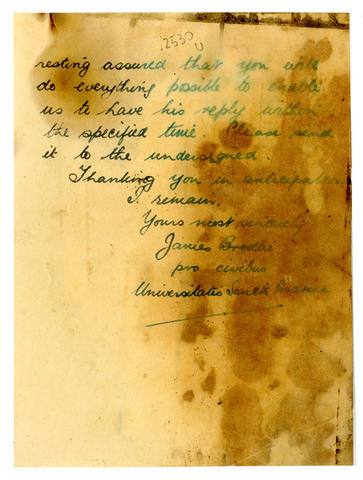 .2530
U
resting assured that you will
do everything posible to enable
us to have his reply within
the specified time. Please send
it to the undersigned.
Thanking you in anticipation
I remain,
Yours most sincerely
James Brodie
pro civibus
Universitatis Sancti Andreae